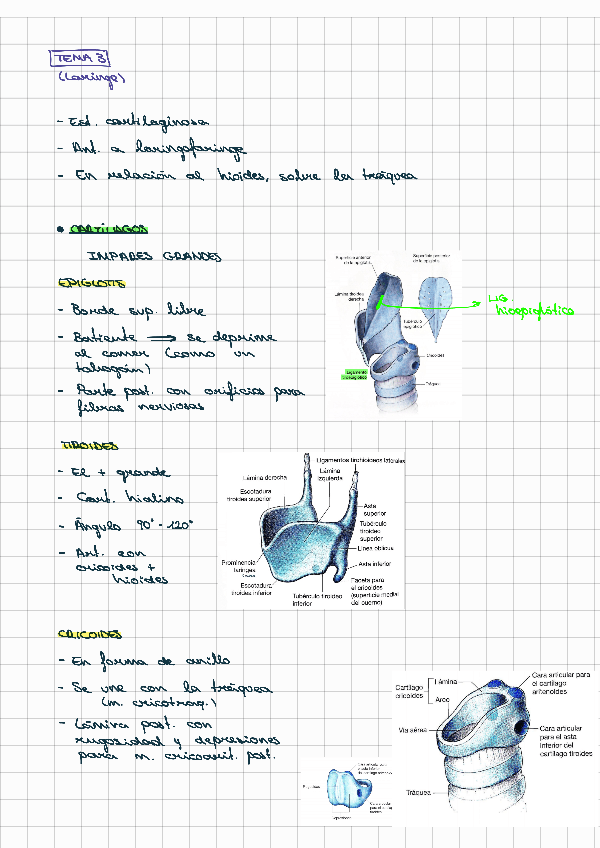 TEMA 3
(Laringe)
- Est. cartilaginosa
- Ant. a laringofaringe
- En relación al hioides, sobre la tráquea
• CARTÍLAGOS
IMPARES GRANDES
EPIGLOTIS
- Borde sup. libre
- Batiente → se deprime
al comer (como un
tobogán)
- Parte post. con orificios para
fibras nerviosas
Superficie anterior
de la epiglotis
Superficie posterior
de la epiglotis
Lámina tiroidea
derecha
LIG.
hioepiglótico
Tubérculo
epiglótico
Cricoides
Ligamento
Tráquea
TIROIDES
- El + grande
- Cart. hialino
- Ángulo 90° - 120°
- Art. con
cricoides +
hioides
Ligamentos tirohioideos laterales
Lámina derecha
Lámina
izquierda
Escotadura
tiroidea superior
Asta
superior
Tubérculo
tiroideo
superior
Línea oblicua
Asta inferior
Prominencia
laríngea
Escotadura
tiroidea inferior
Tubérculo tiroideo
inferior
Faceta para
el cricoides
(superficie medial
del cuerno)
CRICOIDES
- En forma de anillo
- Se une con la tráquea
(m. cricotraq.)
- Lámina post. con
rugosidad y depresiones
para m. cricoarit. post.
Cartílago
cricoides
Lámina
Arco
Cara articular para
el cartílago
aritenoides
Vía aérea
Cara articular
para el asta
inferior del
cartílago tiroides
Tráquea